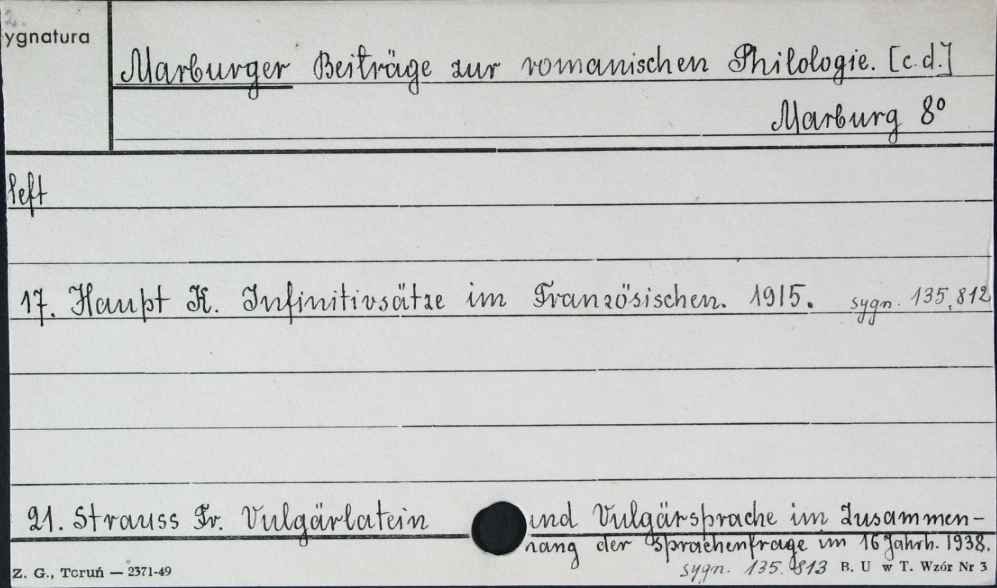 ygnatura
Marburger Beiträge zur romanischen Philologie. [c.d.]
Marburg 8°
left
17. Haupt K. Infinitivsätze im Französischen. 1915. sygn. 135.812
21. Strauss Fr. Vulgärlatein und Vulgärsprache im Zusammen-
hang der Sprachenfrage im 16 Jahrh. 1938.
sygn. 135.813
Z. G., Toruń — 2371-49 B. U w T. Wzór Nr 3